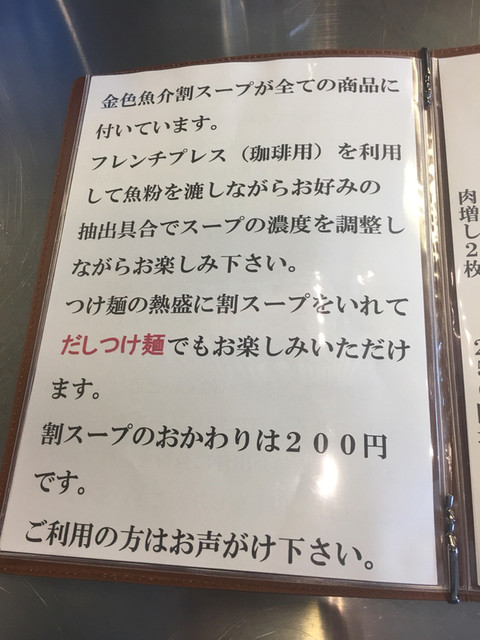 金色魚介割スープが全ての商品に
付いています。
フレンチプレス（珈琲用）を利用
して魚粉を漉しながらお好みの
抽出具合でスープの濃度を調整し
ながらお楽しみ下さい。
つけ麺の熱盛に割スープをいれて
だしつけ麺でもお楽しみいただけ
ます。
割スープのおかわりは２００円
です。
ご利用の方はお声がけ下さい。
肉増し２枚